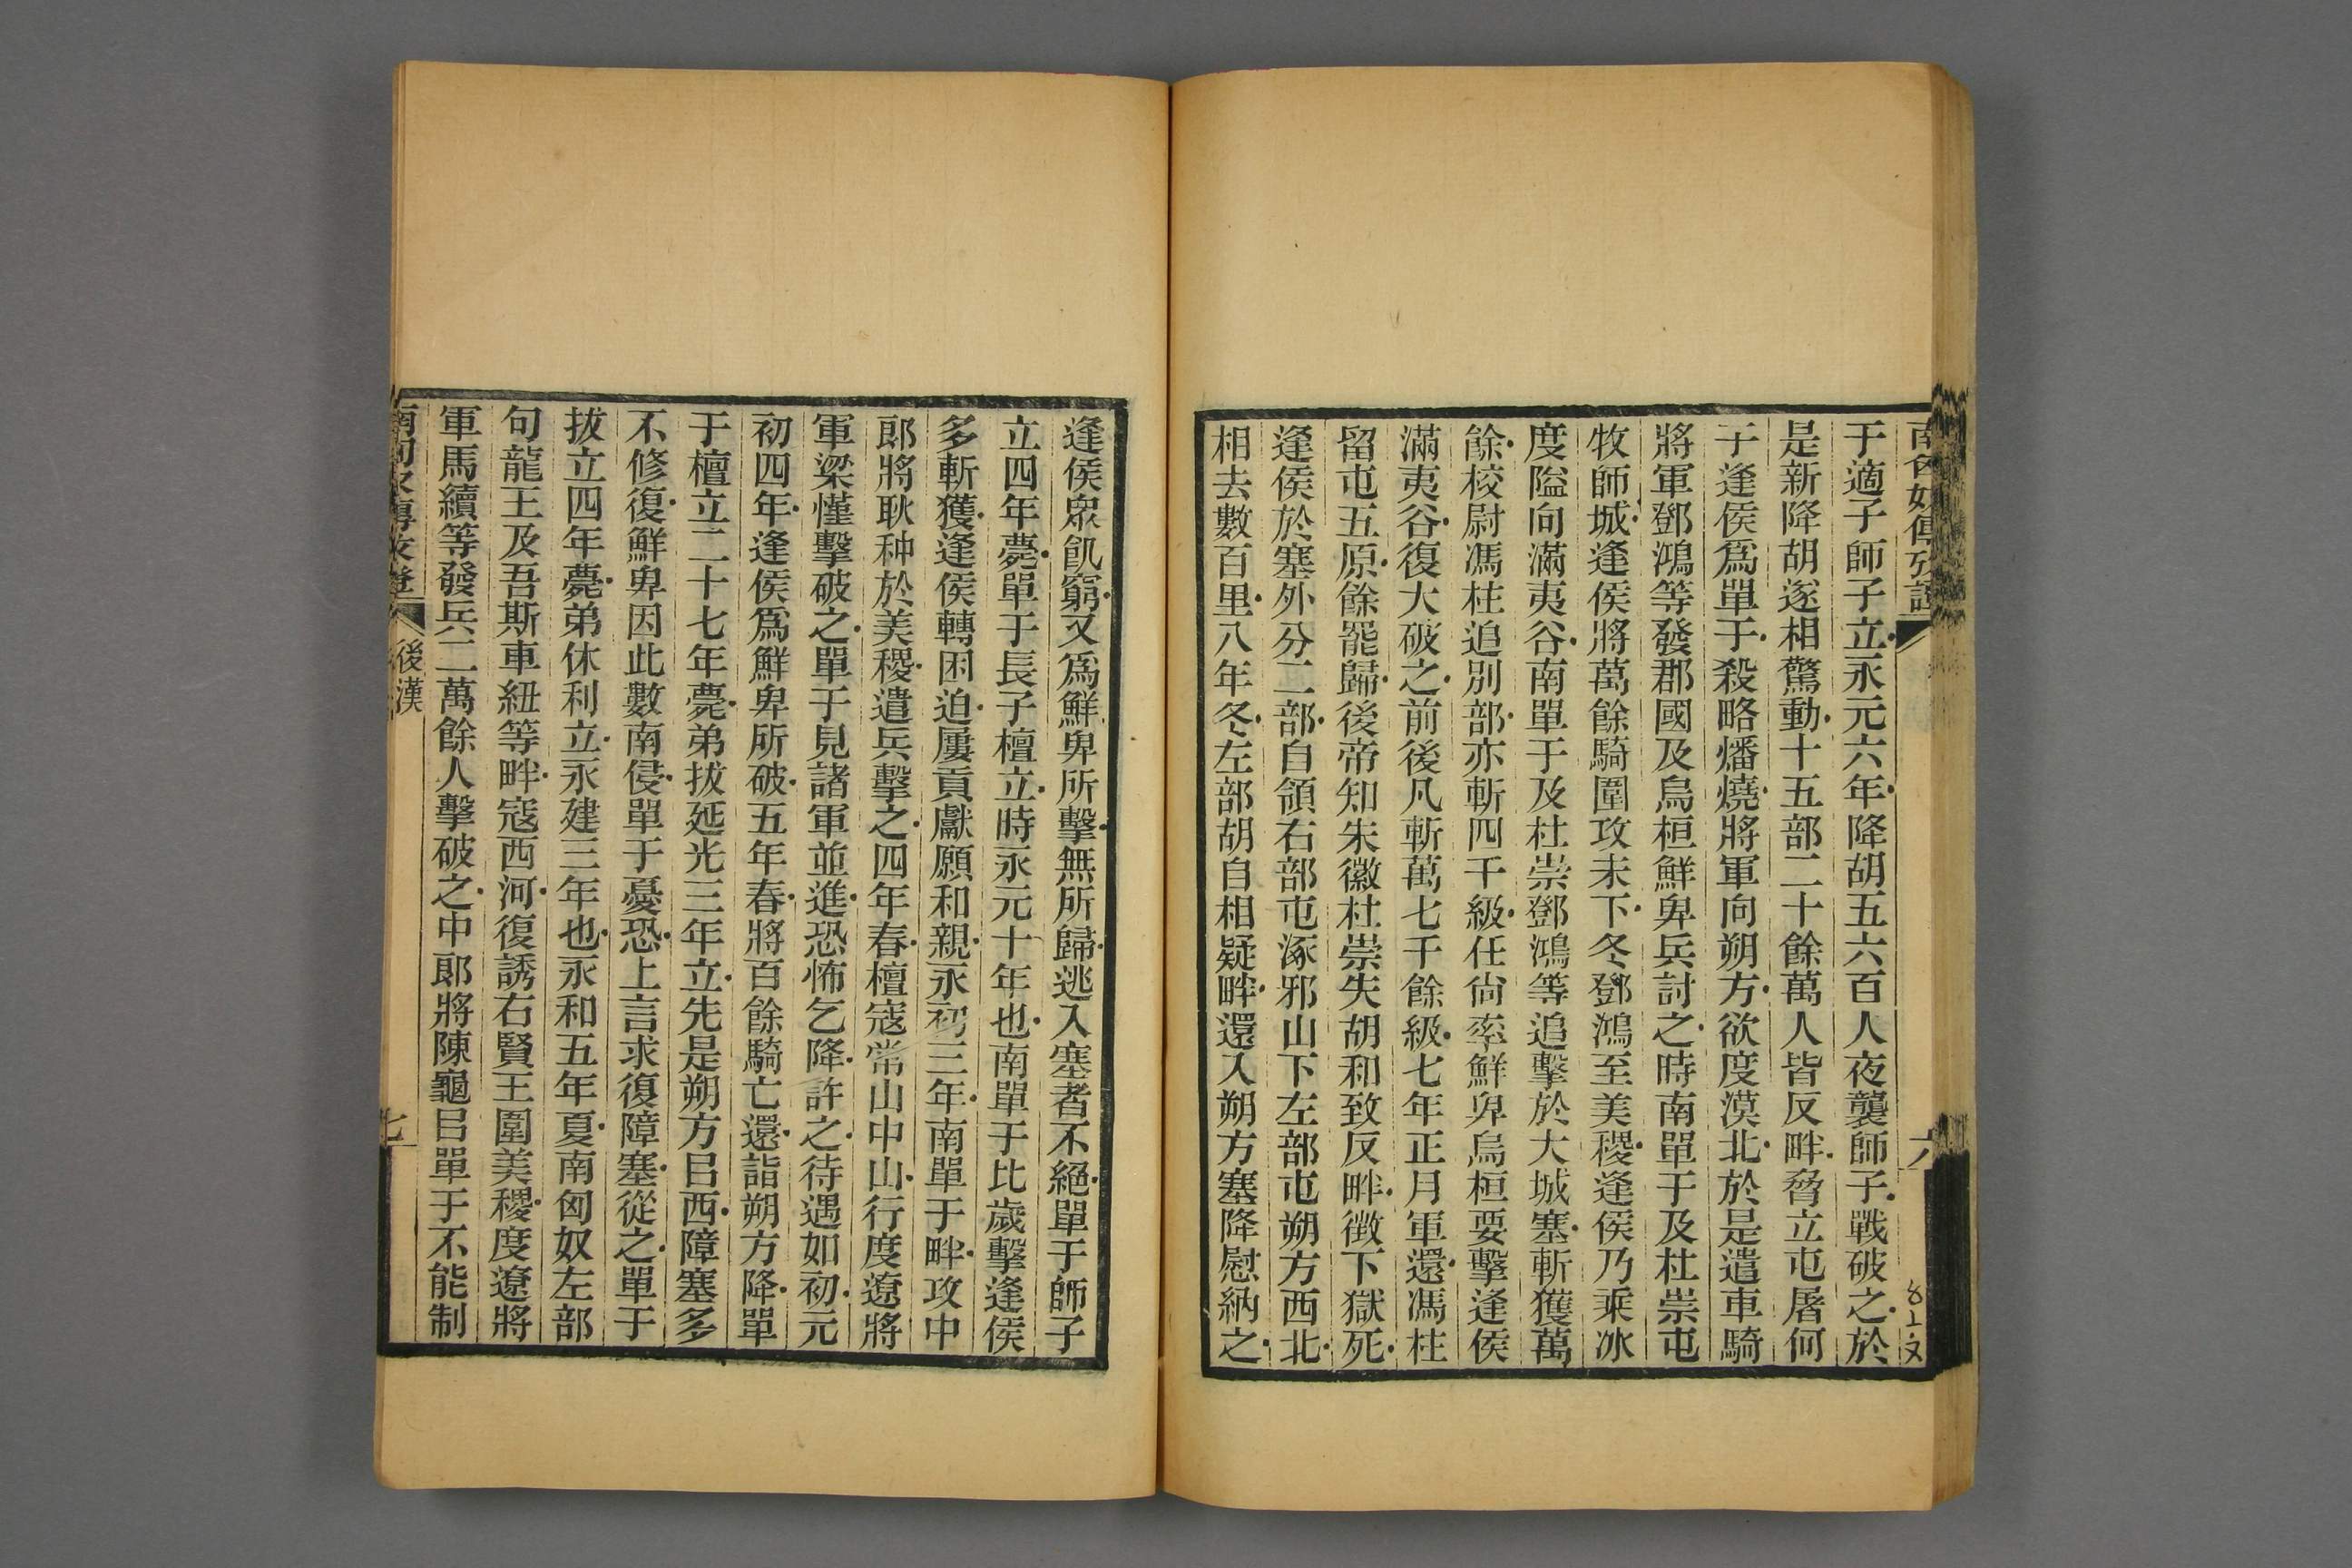 于適子師子立永元六年降胡五六百人夜襲師子戰破之於
是新降胡遂相驚動十五部二十餘萬人皆反畔脅立屯屠何
子逢侯爲單于殺略燔燒將軍向朔方欲度漠北於是遣車騎
將軍鄧鴻等發郡國及烏桓鮮卑兵討之時南單于及杜崇屯
牧師城逢侯將萬餘騎圍攻未下冬鄧鴻至美稷逢侯乃乘冰
度隘向滿夷谷南單于及杜崇鄧鴻等追擊於大城塞斬獲萬
餘校尉馮柱追別部亦斬四千級任尙率鮮卑烏桓要擊逢侯
滿夷谷復大破之前後凡斬萬七千餘級七年正月軍還馮柱
留屯五原餘罷歸後帝知朱徽杜崇失胡和致反畔徵下獄死
逢侯於塞外分二部自領右部屯涿邪山下左部屯朔方西北
相去數百里八年冬左部胡自相疑畔還入朔方塞降慰納之
六
8上文
逢侯衆飢窮又爲鮮卑所擊無所歸逃入塞者不絕單于師子
立四年薨單于長子檀立時永元十年也南單于比歲擊逢侯
多斬獲逢侯轉困迫屢貢獻願和親永初三年南單于畔攻中
郎將耿种於美稷遣兵擊之四年春檀寇常山中山行度遼將
軍梁慬擊破之單于見諸軍並進恐怖乞降許之待遇如初元
初四年逢侯爲鮮卑所破五年春將百餘騎亡還詣朔方降單
于檀立二十七年薨弟拔延光三年立先是朔方㠯西障塞多
不修復鮮卑因此數南侵單于憂恐上言求復障塞從之單于
拔立四年薨弟休利立永建三年也永和五年夏南匈奴左部
句龍王及吾斯車紐等畔寇西河復誘右賢王圍美稷度遼將
軍馬續等發兵二萬餘人擊破之中郎將陳龜㠯單于不能制
後漢
七